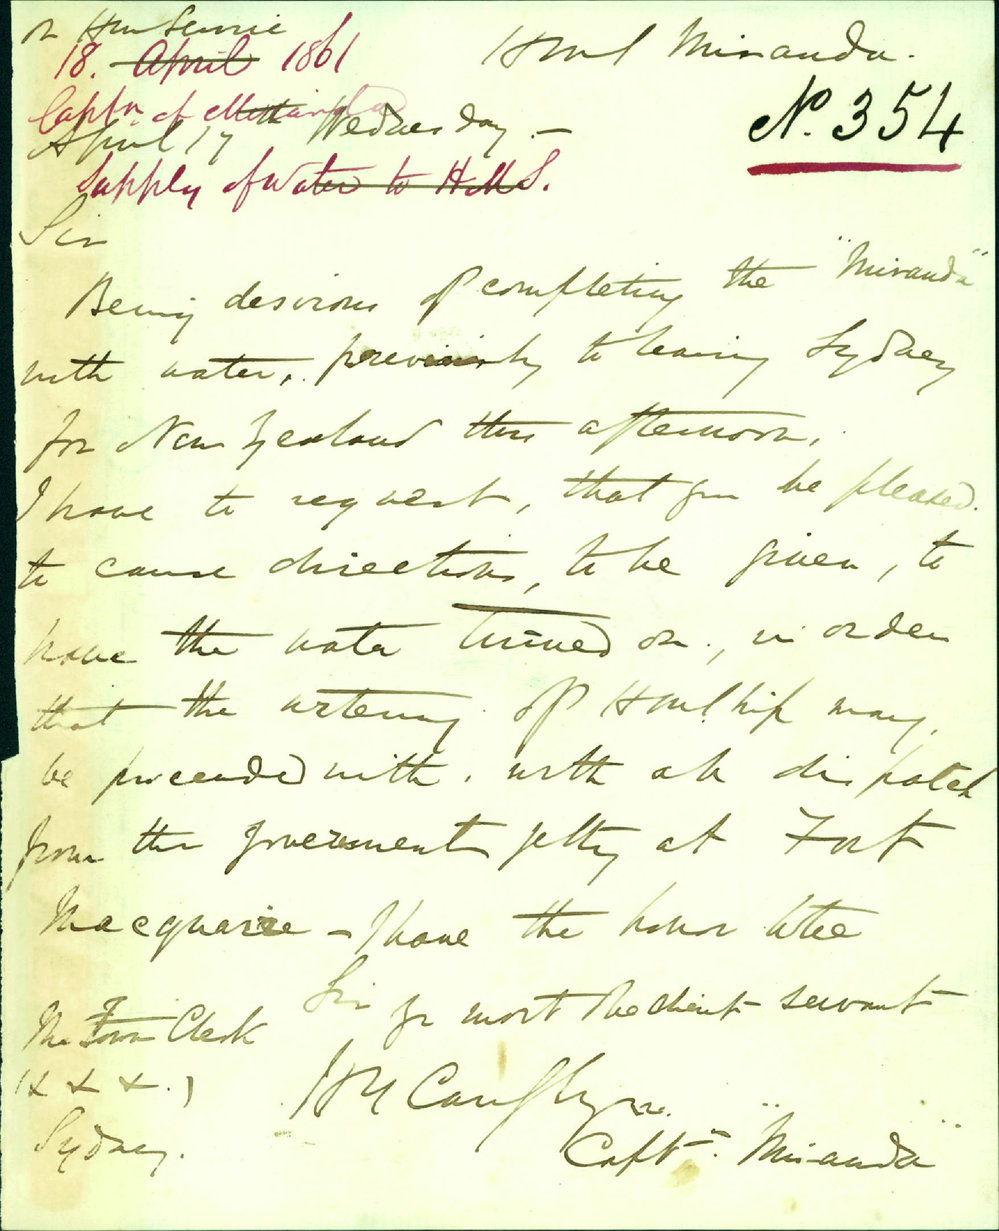 On Her Service
HMS Miranda.
18. April 1861
No. 354
Captn. of
April 17th Wednesday. —
Supply of water to H.M.S.
Sir
Being desirous of completing the "Miranda"
with water, previously to leaving Sydney
for New Zealand this afternoon.
I have to request, that you be pleased
to cause directions, to be given, to
have the water turned on., in order
that the watering of HM Ship may
be proceeded with. with all dispatch
from the Government jetty at Fort
Macquarie – I have the honor to be
Sir
yr most obedient servant
The Town Clerk
(& & &.)
Sydney.
Captn. "Miranda"